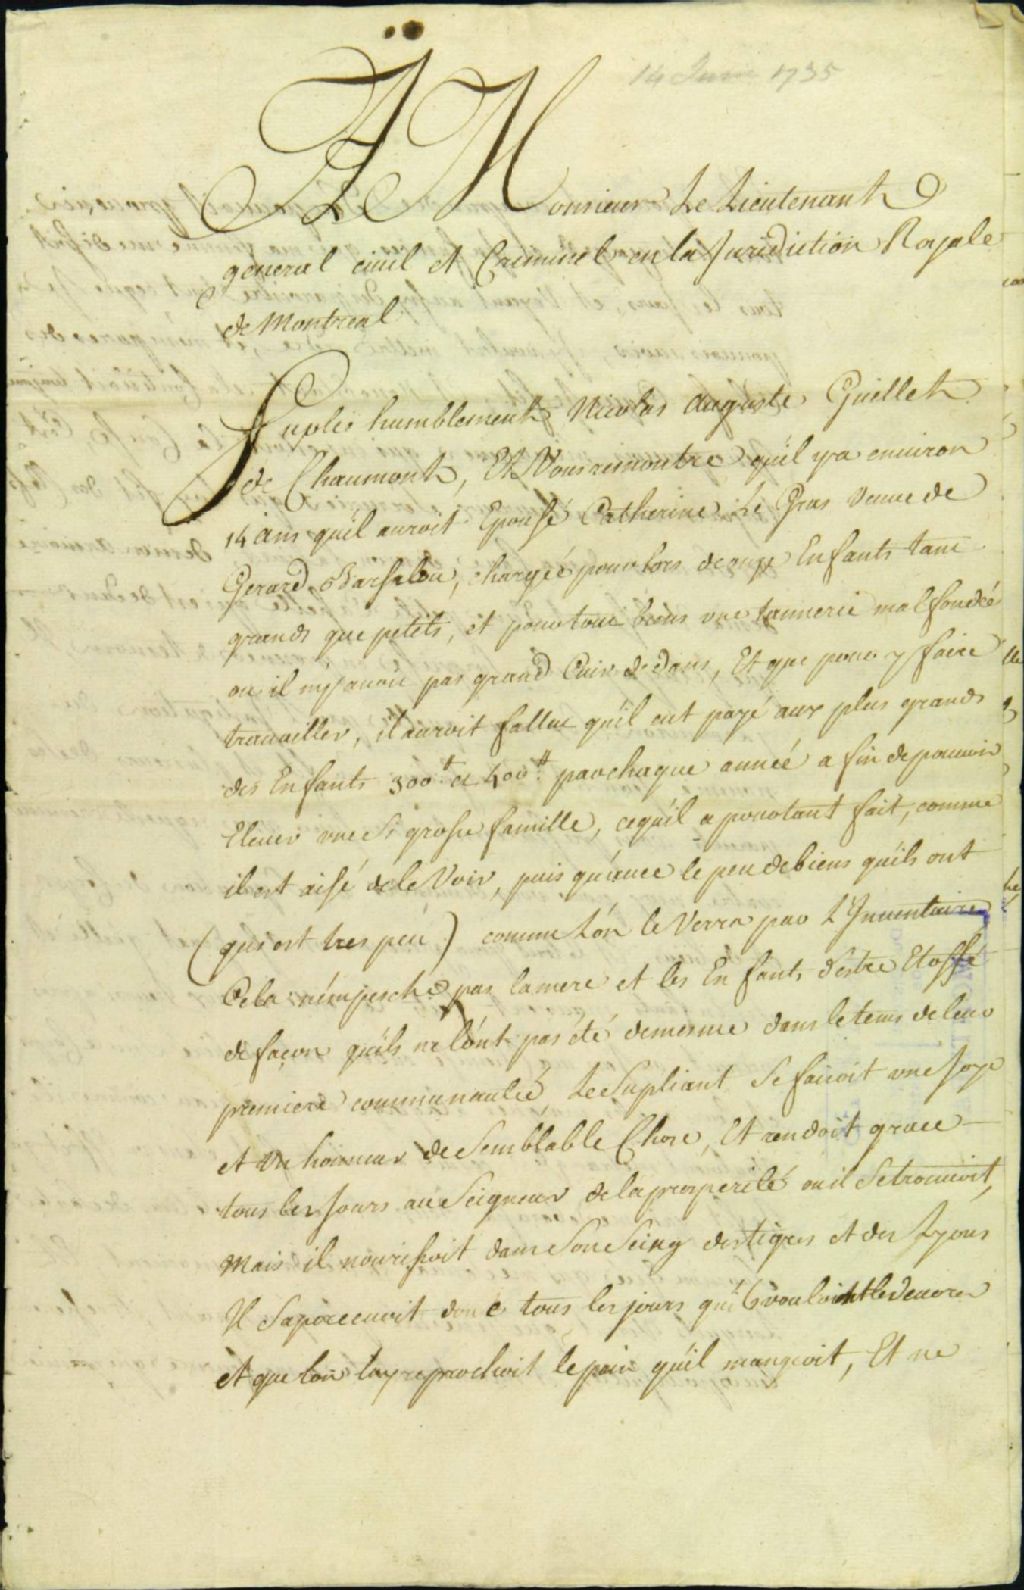 14 Juin 1735
A Monsieur Le Lieutenant
general ciuil et Criminel en la Juridiction Royale
de Montreal
Suplie humblement Nicolas Auguste Guillet
de Chaumont, Et Vous remontre qu'il y a enuiron
14 ans qu'il auroit Epousé Catherine Le Gras Veuue de
Gerard Barsalou, chargée pour lors de onze Enfants tant
grands que petits, et pour tout biens vne tannerie mal fondée
ou il n'y auoit pas grand Cuir dedans, Et que pour y faire
trauailler, il auroit fallut qu'il eut payé aux plus grands
des Enfants 300tt et 400tt par chaque année a fin de pouuoir
Eleuer vne Si grosse famille, ce qu'il a pourtant fait, comme
il est aisé de le Voir, puis qu'auec le peu de biens qu'ils ont
(qui est tres peu) comme L'on le Verra par L'Inuentaire
Cela n'empesche pas la mere et les Enfants d'estre Etoffé
de façon qu'ils ne l'ont pas été demesme dans le tems de leur
premiere communauté, Le Supliant Se faisoit vne Joye
et vn honneur de Semblable Chose, Et rendoit grace
tous les Jours au Seigneur de la prosperité ou il Se trouuoit,
Mais il nourissoit dans Son Seing des tigres et des Lyons
Il Saperceuoit donc tous les jours qu'ils vouloint le deuorer
et que lon luy reprochoit le pain qu'il mangeoit, Et ne